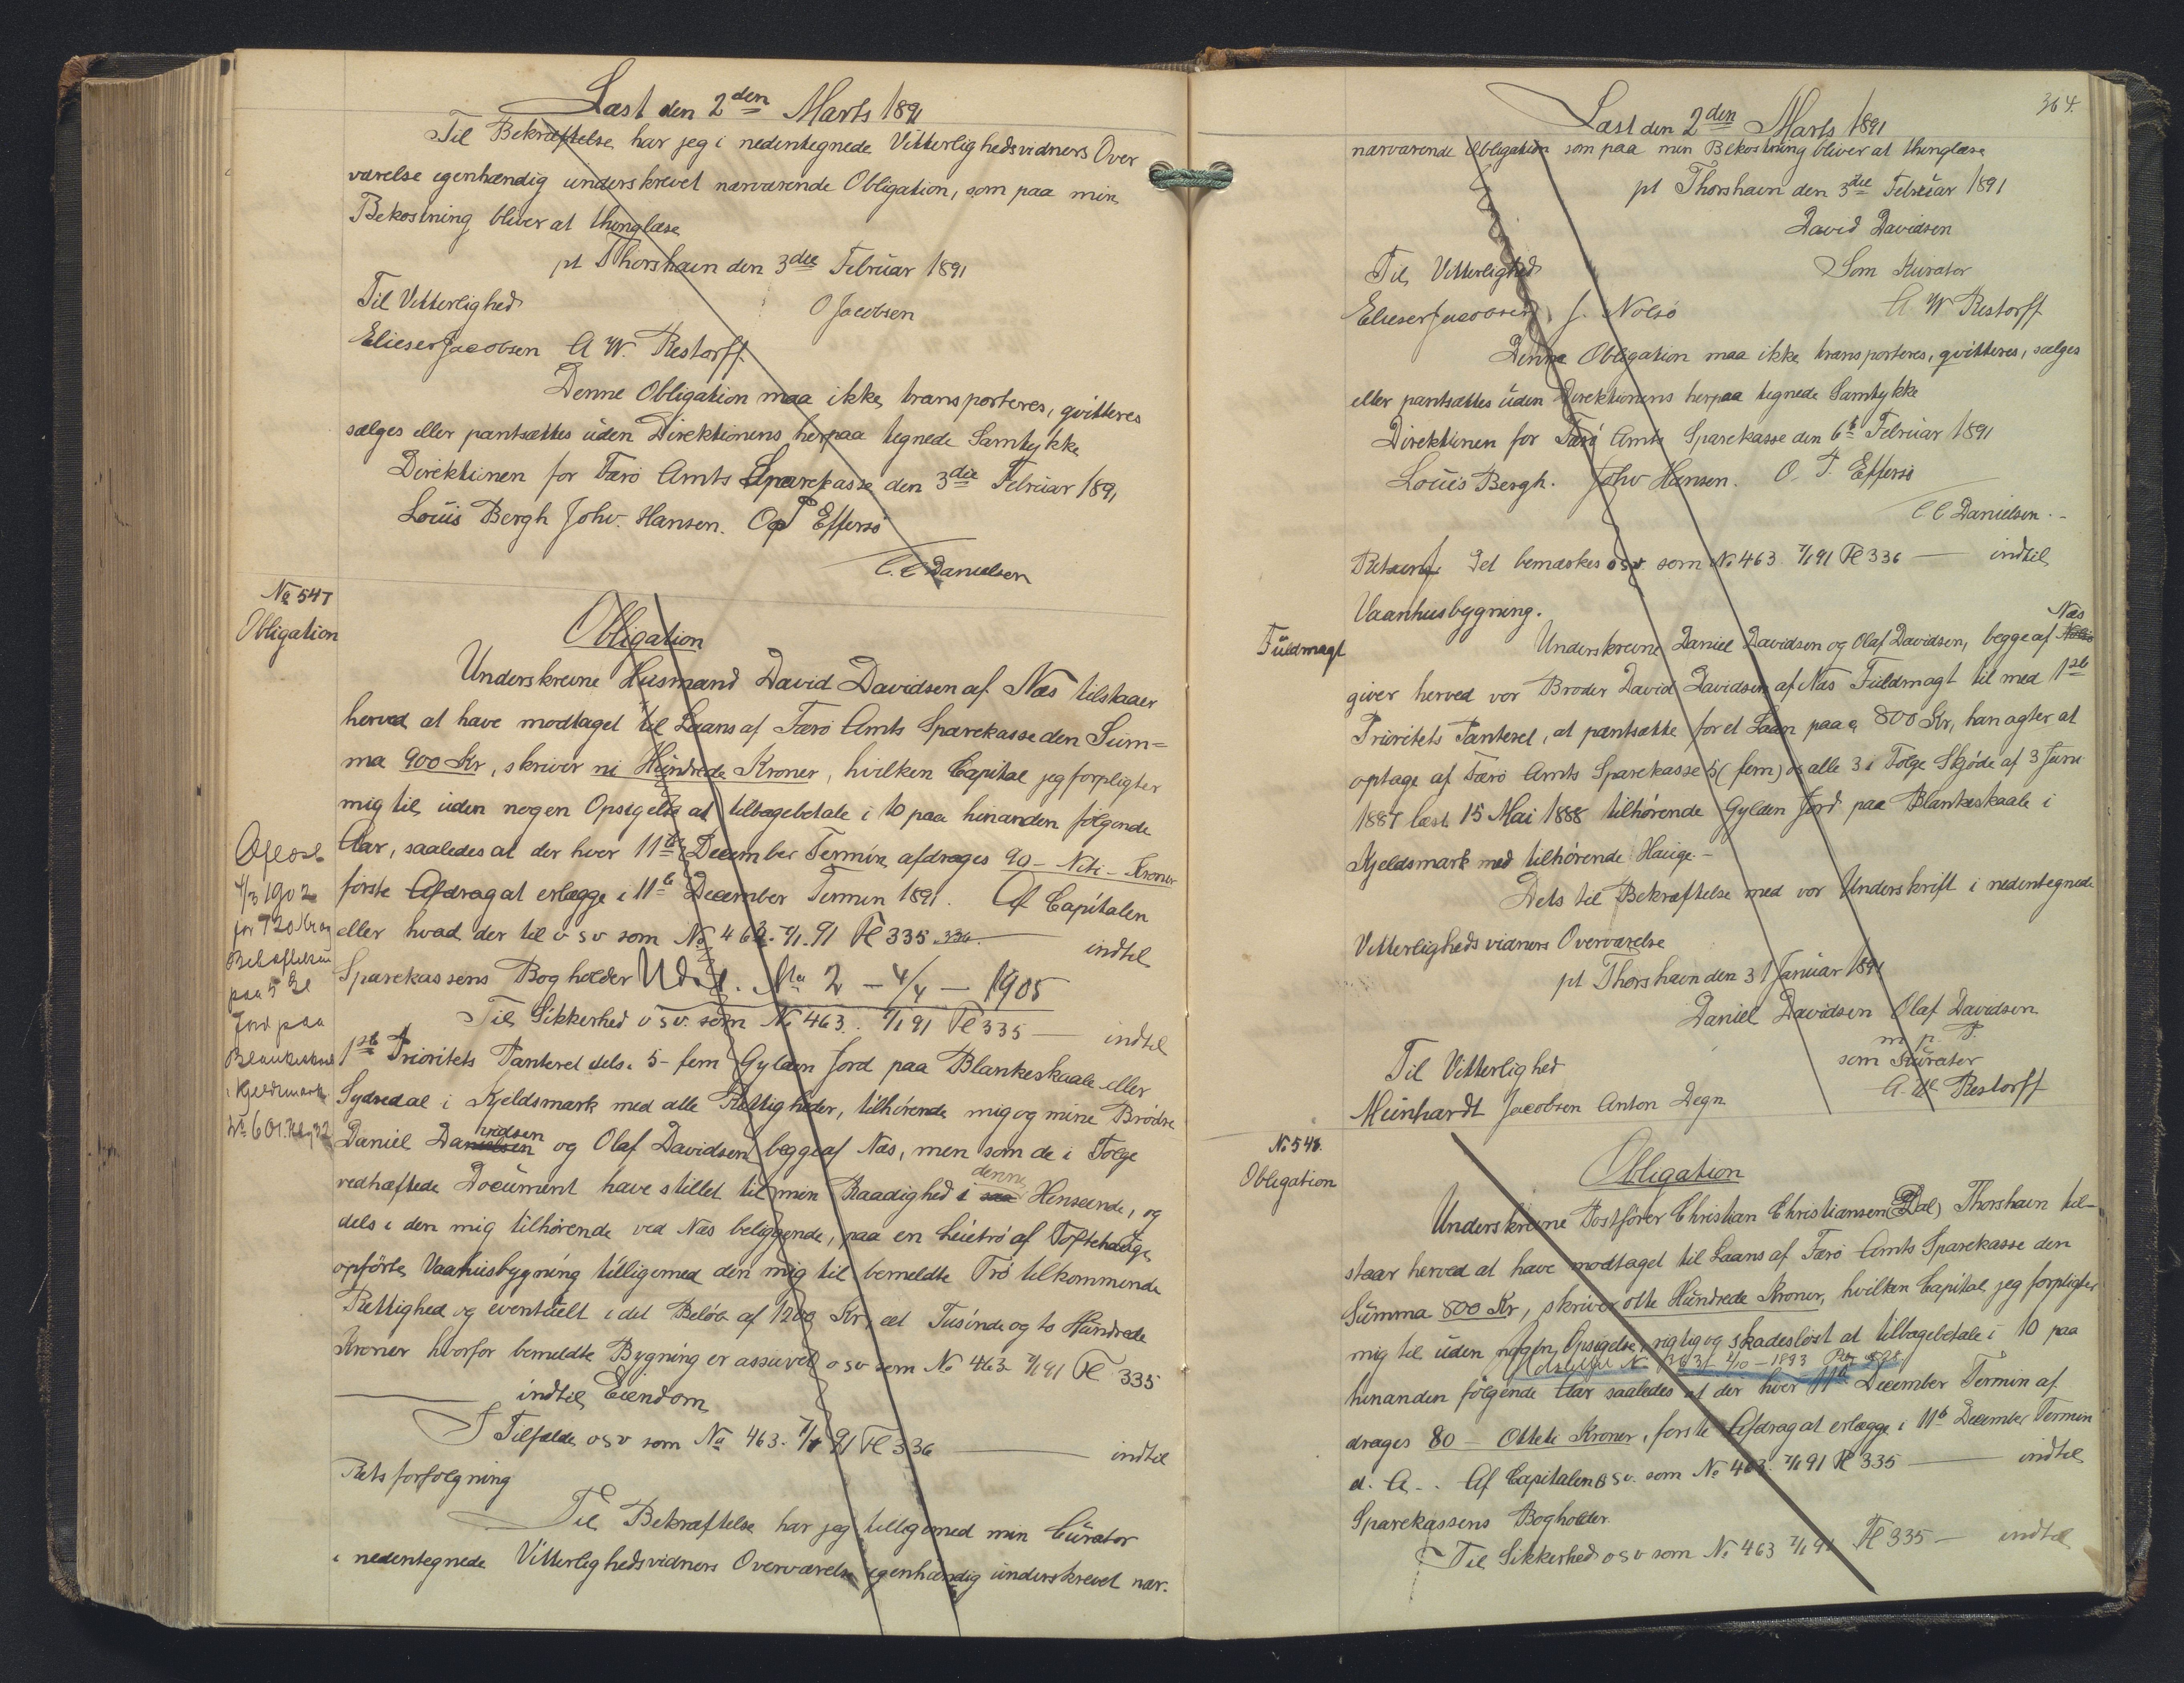 Læst den 2den Marts 1891
Til Bekræftelse har jeg i nedentegnede Vitterlighedsvidners Over
værelse egenhændig underskrevet nærværende Obligation, som paa min
Bekostning bliver at thinglæse
pt Thorshavn den 3die Februar 1891
Til Vitterlighed O Jacobsen
Elieser Jacobsen A W. Restorff
Denne Obligation maa ikke transporteres, qvitteres
sælges eller pantsættes uden Direktionens herpaa tegnede Samtykke
Direktionen for Færø Amts Sparekasse den 3die Februar 1891
Louis Bergh Johv. Hansen. O P Effersö
C. C Danielsen
No 547
Obligation
Obligation
Underskrevne Husmand David Davidsen af Næs tilstaaer
herved at have modtaget til Laans af Færø Amts Sparekasse den Sum=
ma 900 Kr, skriver ni Hundrede Kroner, hvilken Capital jeg forpligter
mig til uden nogen Opsigelse at tilbagebetale i 10 paa hinanden følgende
Aar, saaledes at der hver 11te December Termin afdrages 90 - Niti - Kroner
første Afdrag at erlægge i 11te December Termin 1891. Af Capitalen
eller hvad der til osv som No 463. 7/1. 91 Fl 335. 336. — indtil
Sparekassens Bogholder Udsl. No 2 - 4/4 - 1905
Til Sikkerhed osv. som No 463. 7/1 91 Fl 335 — indtil
1ste Prioritets Panteret dels i 5 - fem Gylden Jord paa Blankeskaale eller
Sydredal i Kjeldsmark med alle Rettigheder, tilhørende mig og mine Brödre
Daniel Danielsen vidsen og Olaf Davidsen begge af Næs, men som de i Følge
vedhæftede Document have stillet til min Raadighed i saa denne Henseende, og
dels i den mig tilhørende ved Næs beliggende, paa en Leietrö af Toftehauge
opførte Vaanhusbygning tilligemed den mig til bemeldte Trö tilkommende
Rettighed og eventuelt i det Beløb af 1200 Kr, et Tusinde og to Hundrede
Kroner hvorfor bemeldte Bygning er assureret osv som No 463 7/1 91 Fl 335
— indtil Eiendom
I Tilfælde osv som No 463. 7/1 91 Fl 336 — indtil
Retsforfølgning
Til Bekræftelse har jeg tilligemed min Curator
i nedentegnede Vitterlighedsvidners Overværelse egenhændig underskrevet nær-
Afløst
4/3 1902
for 720 Kr og
Behæftelsen
paa 5 Gl
Jord paa
Blankeskaale
i Kjeldsmark
364.
Læst den 2den Marts 1891
nærværende Obligation som paa min Bekostning bliver at thinglæse
pt Thorshavn den 3die Februar 1891
David Davidsen
Til Vitterlighed Som Kurator
Elieser Jacobsen, J. Nolsø A W Restorff
Denne Obligation maa ikke transporteres, qvitteres, sælges
eller pantsættes uden Direktionens herpaa tegnede Samtykke
Direktionen for Færø Amts Sparekasse den 6te Februar 1891
Louis Bergh. Johv Hansen. O. P. Effersö
C C Danielsen.-
Retsanm. Det bemærkes osv som No 463 7/1 91 Fl 336 — indtil
Vaanhusbygning.
Fuldmagt
Underskrevne Daniel Davidsen og Olaf Davidsen, begge af Nolsö Næs
giver herved vor Broder David Davidsen af Næs Fuldmagt til med 1ste
Prioritets Panteret, at pantsætte for et Laan paa 800 Kr, han agter at
optage af Færø Amts Sparekasse 5 (fem) os alle 3 i Følge Skjøde af 3 Juni
1887 læst 15 Mai 1888 tilhørende Gylden Jord paa Blankeskaale i
Kjeldsmark med tilhørende Hauge.-
Dets til Bekræftelse med vor Underskrift i nedentegnede
Vitterlighedsvidners Overværelse
pt Thorshavn den 31 Januar 1891
Daniel Davidsen Olaf Davidsen
m. p. P.
Til Vitterlighed som Kurator
Meinhardt Jacobsen Anton Degn A. W Restorff
No 548.
Obligation
Obligation
Underskrevne Postfører Christian Christiansen (Dal) Thorshavn til-
staar herved at have modtaget til Laans af Færø Amts Sparekasse den
Summa 800 Kr, skriver otte Hundrede Kroner, hvilken Capital jeg forpligter
mig til uden nogen Opsigelse rigtig og skadesløst at tilbagebetale i 10 paa
Udslettet No 4/10 - 1893
hinanden følgende Aar saaledes at der hver 11te December Termin af
drages 80 - Ottete Kroner, første Afdrag at erlægge i 11te December Termin
d. A.. Af Capitalen osv. som No 463. 7/1 91 Fl 335 — indtil
Sparekassens Bogholder.
Til Sikkerhed osv som No 463 7/1 91 Fl 335 — indtil